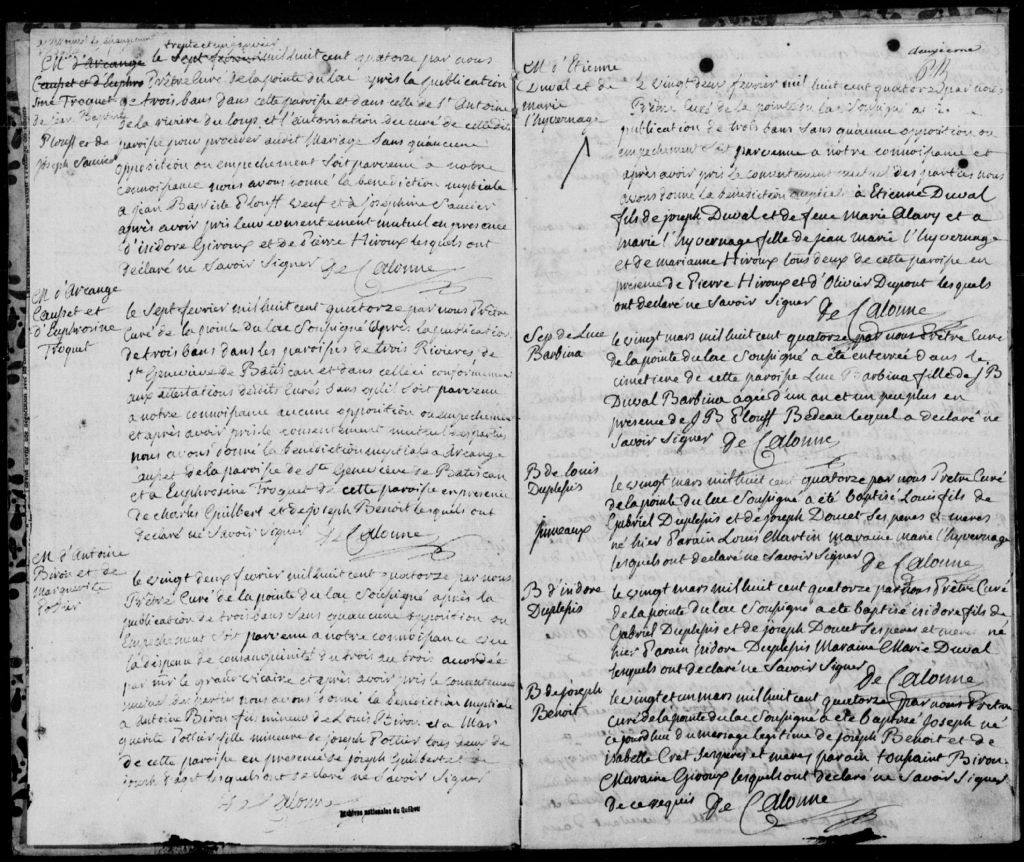 M d'Arcange
Causset et d'Euphro
sine Troquet
de jean Baptiste
Plouff et de
Joseph Saucier
trente et un janvier
le Sept fevrier mil huit cent quatorze par nous
Prêtre Curé de la pointe du lac après la publication
de trois bans dans cette paroisse et dans celle de St Antoine
de la riviere du loup et l'autorisation du curé de cette dite
paroisse pour proceder audit Mariage Sans quaucune
opposition ou empechement Soit parvenu a notre
connoissance nous avons donné la benediction nuptiale
a jean Baptiste Plouff veuf et a josephine Saucier
après avoir pris leur consentement mutuel en presence
d'isidore Giroux et de Pierre Hiroux lesquels ont
declaré ne Savoir Signer De Calonne
M d'Arcange
Causset et
d'Euphrosine
Troquet
le Sept fevrier mil huit cent quatorze par nous Prêtre
Curé de la pointe du lac Soussigné après la publication
de trois bans dans les paroisses de trois Rivieres, de
Ste Genevieve de Batiscan et dans celle ci conformement
aux attestations desdits Curés Sans qu'il Soit parvenu
a notre connoissance aucune opposition ou empechement
et après avoir pris le consentement mutuel des parties
nous avons donné la benediction nuptiale a Arcange
Causset de la paroisse de Ste Genevieve de Batiscan
et a Euphrosine Troquet de cette paroisse en presence
de Charles Guilbert et de joseph Benoit lesquels ont
declaré ne Savoir Signer De Calonne
M d'Antoine
Biron et de
Marguerite
Pottier
le vingt deux fevrier mil huit cent quatorze par nous
Prêtre Curé de la pointe du lac Soussigné après la
publication de trois bans Sans quaucune opposition ou
Empechement Soit parvenu a notre connoissance
la dispense de consanguinité du trois au trois accordée
par mr le grand vicaire et après avoir pris le consentement
mutuel des parties nous avons donné la benediction nuptiale
a Antoine Biron fils mineur de Louis Biron et a Mar
guerite Pottier fille mineure de joseph Pottier tous deux de
de cette paroisse en presence de joseph Guilbert et de
joseph lesquels ont declaré ne Savoir Signer
De Calonne
Archives nationales du Québec
deuxieme
M d'Etienne
Duval et de
marie
l'hyvernage
le vingt deux fevrier mil huit cent quatorze par nous
Prêtre Curé de la pointe du lac Soussigné
publication de trois bans Sans quaucune opposition ou
empechement Soit parvenue a notre connoissance et
après avoir pris le consentement mutuel des parties nous
avons donné la benediction nuptiale a Etienne Duval
fils de joseph Duval et de feue Marie Alary et a
marie l'hyvernage fille de jean marie l'hyvernage
et de marianne Hiroux tous deux de cette paroisse en
presence de Pierre Hiroux et d'Olivier Dupont lesquels
ont declaré ne Savoir Signer De Calonne
Sep de Luce
Barbina
le vingt mars mil huit cent quatorze par nous Prêtre Curé
de la pointe du lac Soussigné a été enterrée dans le
cimetiere de cette paroisse Luce Barbina fille de J B
Duval Barbina agée d'un an et un peu plus en
presence de J B Plouff Bedeau lequel a declaré ne
Savoir Signer De Calonne
B de louis
Duplessis
jumeaux
le vingt mars mil huit cent quatorze par nous Prêtre Curé
de la pointe du lac Soussigné a été baptisé Louis fils de
Gabriel Duplessis et de joseph Doucet Ses peres et meres
né hier Parain Louis Martin maraine marie l'hyvernage
lesquels ont declaré ne Savoir Signer
De Calonne
B d'isidore
Duplessis
le vingt mars mil huit cent quatorze par nous Prêtre Curé
de la pointe du lac Soussigné a été baptisé isidore fils de
Gabriel Duplessis et de joseph Doucet Ses peres et meres né
hier Parain isidore Duplessis Maraine Marie Duval
lesquels ont declaré ne Savoir Signer
De Calonne
B de joseph
Benoit
le vingt et un mars mil huit cent quatorze par nous Prêtre
curé de la pointe du lac Soussigné a été baptisé Joseph né
ce jourd'hui du mariage legitime de joseph Benoit et de
isabelle Cret Ses peres et meres parain toussaint Biron
Maraine Giroux lesquels ont declaré ne Savoir Signer
de ce requis De Calonne